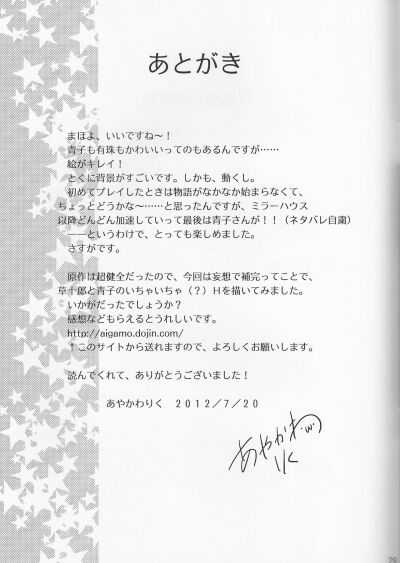 あとがき
まほよ、いいですね～！
青子も有珠もかわいいってのもあるんですが……
絵がキレイ！
とくに背景がすごいです。しかも、動くし。
初めてプレイしたときは物語がなかなか始まらなくて、
ちょっとどうかな～……と思ったんですが、ミラーハウス
以降どんどん加速していって最後は青子さんが！！（ネタバレ自粛）
――というわけで、とっても楽しめました。
さすがです。
原作は超健全だったので、今回は妄想で補完ってことで、
草十郎と青子のいちゃいちゃ（？）Ｈを描いてみました。
いかがだったでしょうか？
感想などもらえるとうれしいです。
http://aigamo.dojin.com/
↑このサイトから送れますので、よろしくお願いします。
読んでくれて、ありがとうございました！
あやかわりく　２０１２／７／２０
あやかわ
りく